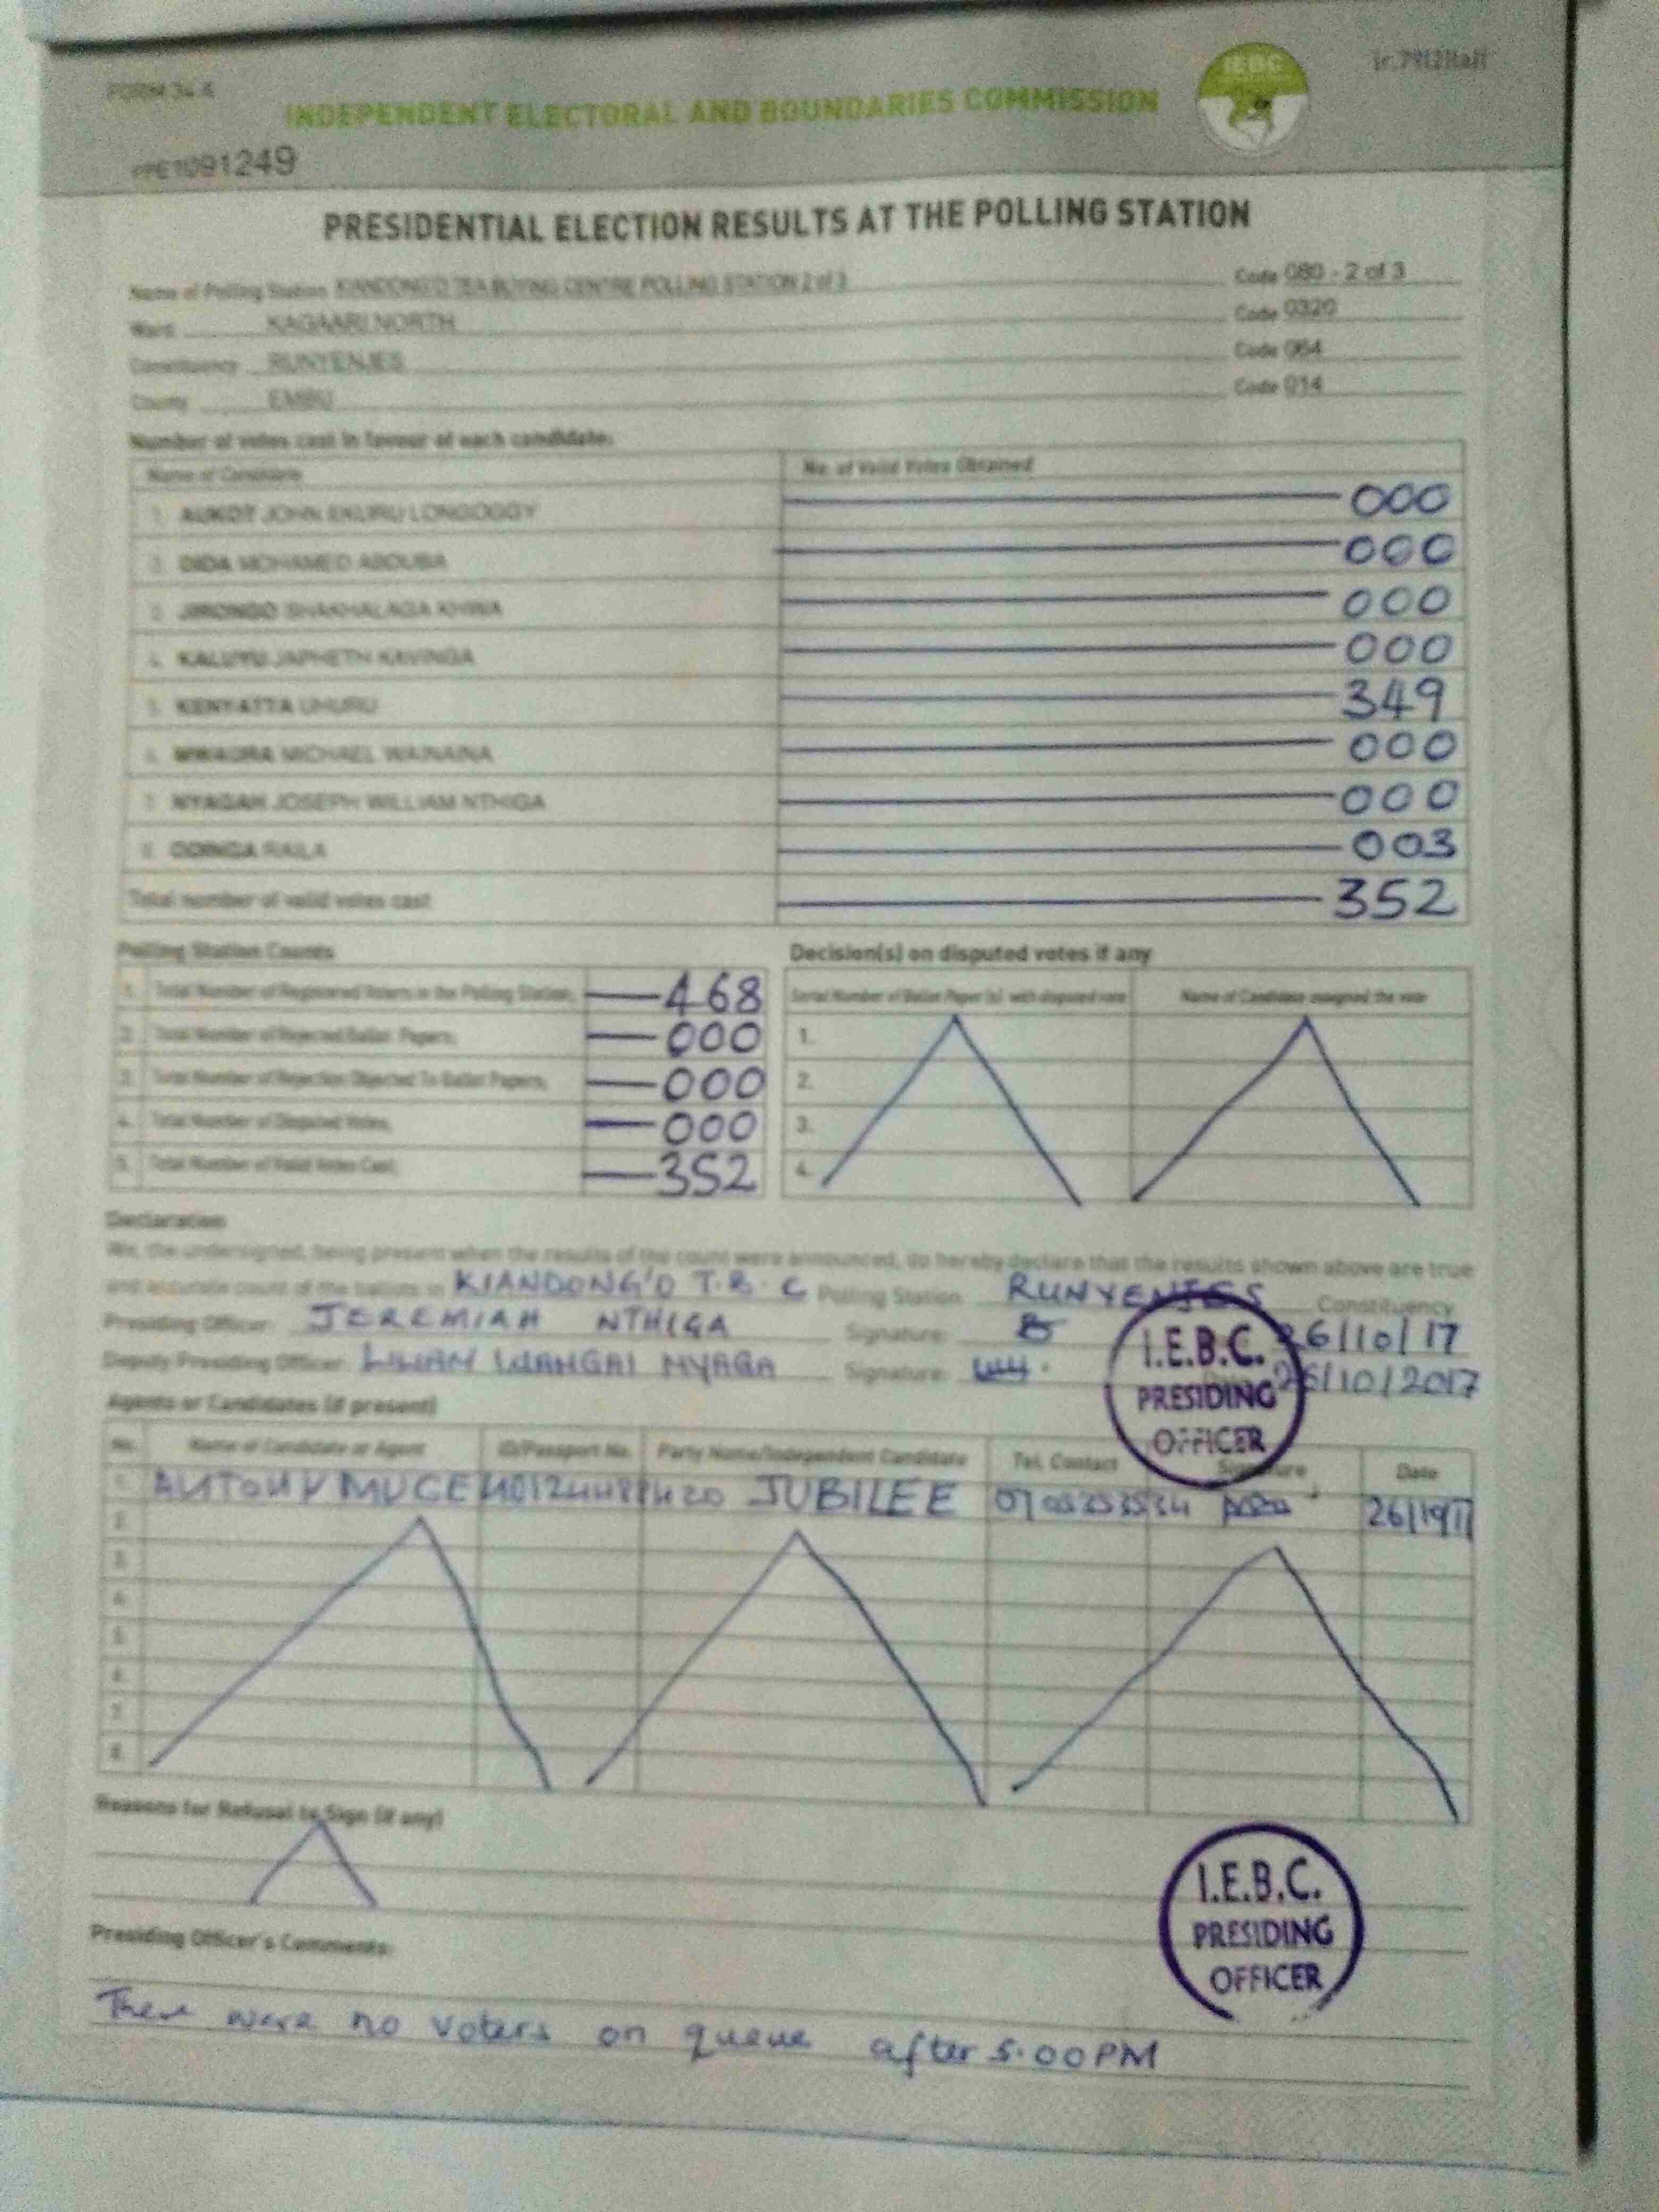 FORM 34 A
(r.79(2)(a))
IEBC
INDEPENDENT ELECTORAL AND BOUNDARIES COMMISSION
PPE1091249
PRESIDENTIAL ELECTION RESULTS AT THE POLLING STATION
Name of Polling Station KIANDONG'O TEA BUYING CENTRE POLLING STATION 2 of 3 Code 080 - 2 of 3
Ward KAGAARI NORTH Code 0320
Constituency RUNYENJES Code 064
County EMBU Code 014
Number of votes cast in favour of each candidate:
Name of Candidate No. of Valid Votes Obtained
1. AUKOT JOHN EKURU LONGOGGY 000
2. DIDA MOHAMED ABDUBA 000
3. JIRONGO SHAKHALAGA KHWA 000
4. KALUYU JAPHETH KAVINGA 000
5. KENYATTA UHURU 349
6. MWAURA MICHAEL WAINAINA 000
7. NYAGAH JOSEPH WILLIAM NTHIGA 000
8. ODINGA RAILA 003
Total number of valid votes cast 352
Polling Station Counts
1. Total Number of Registered Voters in the Polling Station; 468
2. Total Number of Rejected Ballot Papers; 000
3. Total Number of Rejection Objected To Ballot Papers; 000
4. Total Number of Disputed Votes; 000
5. Total Number of Valid Votes Cast; 352
Decision(s) on disputed votes if any
Serial Number of Ballot Paper (s) with disputed vote Name of Candidate assigned the vote
1.
2.
3.
4.
Declaration
We, the undersigned, being present when the results of the count were announced, do hereby declare that the results shown above are true
and accurate count of the ballots in KIANDONG'O T.B.C Polling Station RUNYENJES Constituency
Presiding Officer: JEREMIAH NTHIGA Signature: 26/10/17
Deputy Presiding Officer: LILIAN WANGAI NYAGA Signature: 26/10/2017
I.E.B.C.
PRESIDING
OFFICER
Agents or Candidates (if present)
No. Name of Candidate or Agent ID/Passport No. Party Name/Independent Candidate Tel. Contact Signature Date
1. JUBILEE
2.
3.
4.
5.
6.
7.
8.
Reasons for Refusal to Sign (if any)
I.E.B.C.
PRESIDING
OFFICER
Presiding Officer's Comments:
There were no voters on queue after 5.00PM